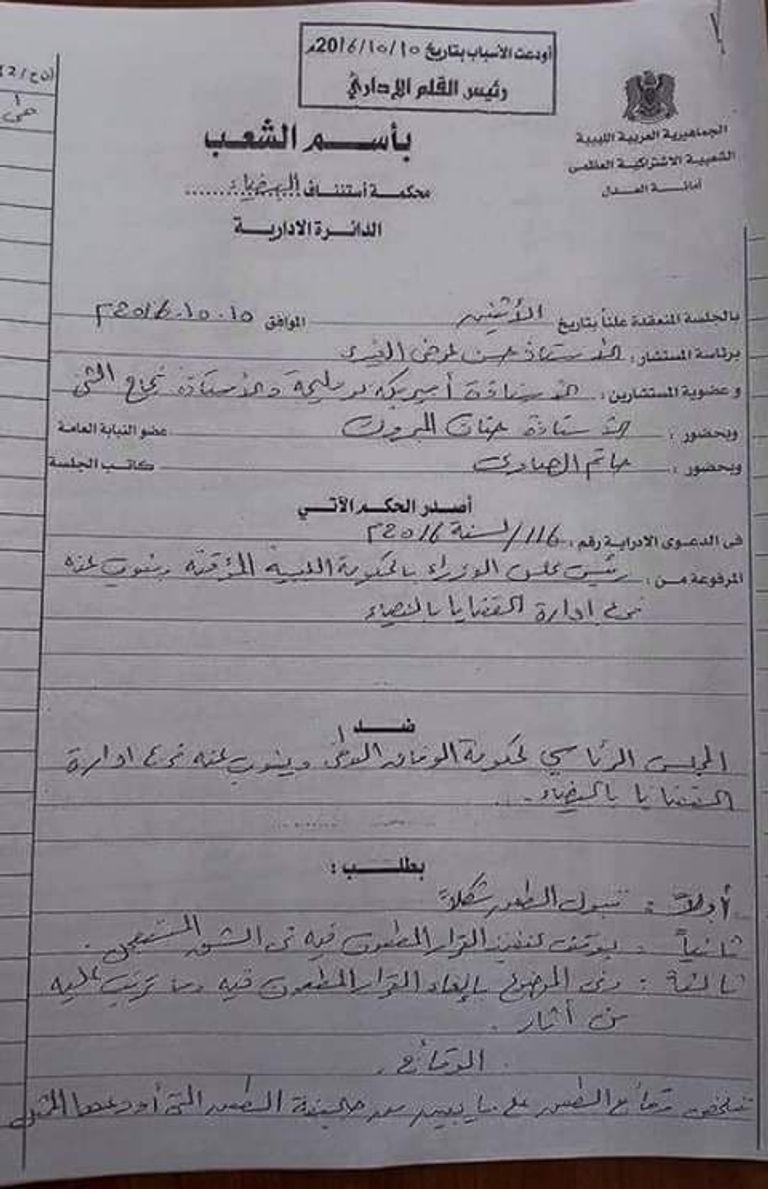 أودعت الأسباب بتاريخ ١٠/١٠/2016م
رئيس القلم الإداري
الجماهيرية العربية الليبية
الشعبية الاشتراكية العظمى
أمانة العدل
بأسم الشعب
محكمة أستئناف البيضاء
الدائرة الادارية
بالجلسة المنعقدة علناً بتاريخ الأثنين الموافق 10.10.2016م
برئاسة المستشار: الأستاذ حسن عوض
وعضوية المستشارين: الأستاذة والأستاذة نجاح
وبحضور: الأستاذة حنان المبروك عضو النيابة العامة
وبحضور: حاتم كاتب الجلسة
أصدر الحكم الآتي
فى الدعوى الادراية رقم: 116/لسنة 2016م
المرفوعة من: رئيس مجلس الوزراء بالحكومة الليبية المؤقتة وينوب عنه
فرع ادارة القضايا بالبيضاء
ضد
المجلس الرئاسي لحكومة الوفاق الوطنى وينوب عنه فرع ادارة
القضايا بالبيضاء.
بطلب:
أولاً: قبول الطعن شكلاً
ثانياً: بوقف تنفيذ القرار المطعون فيه فى الشق المستعجل.
ثالثة: وفى الموضوع بإلغاء القرار المطعون فيه وما ترتب عليه
من أثار.
الوقائع.
تتلخص وقائع الطعن على ما يبين من صحيفة الطعن التى أودعها